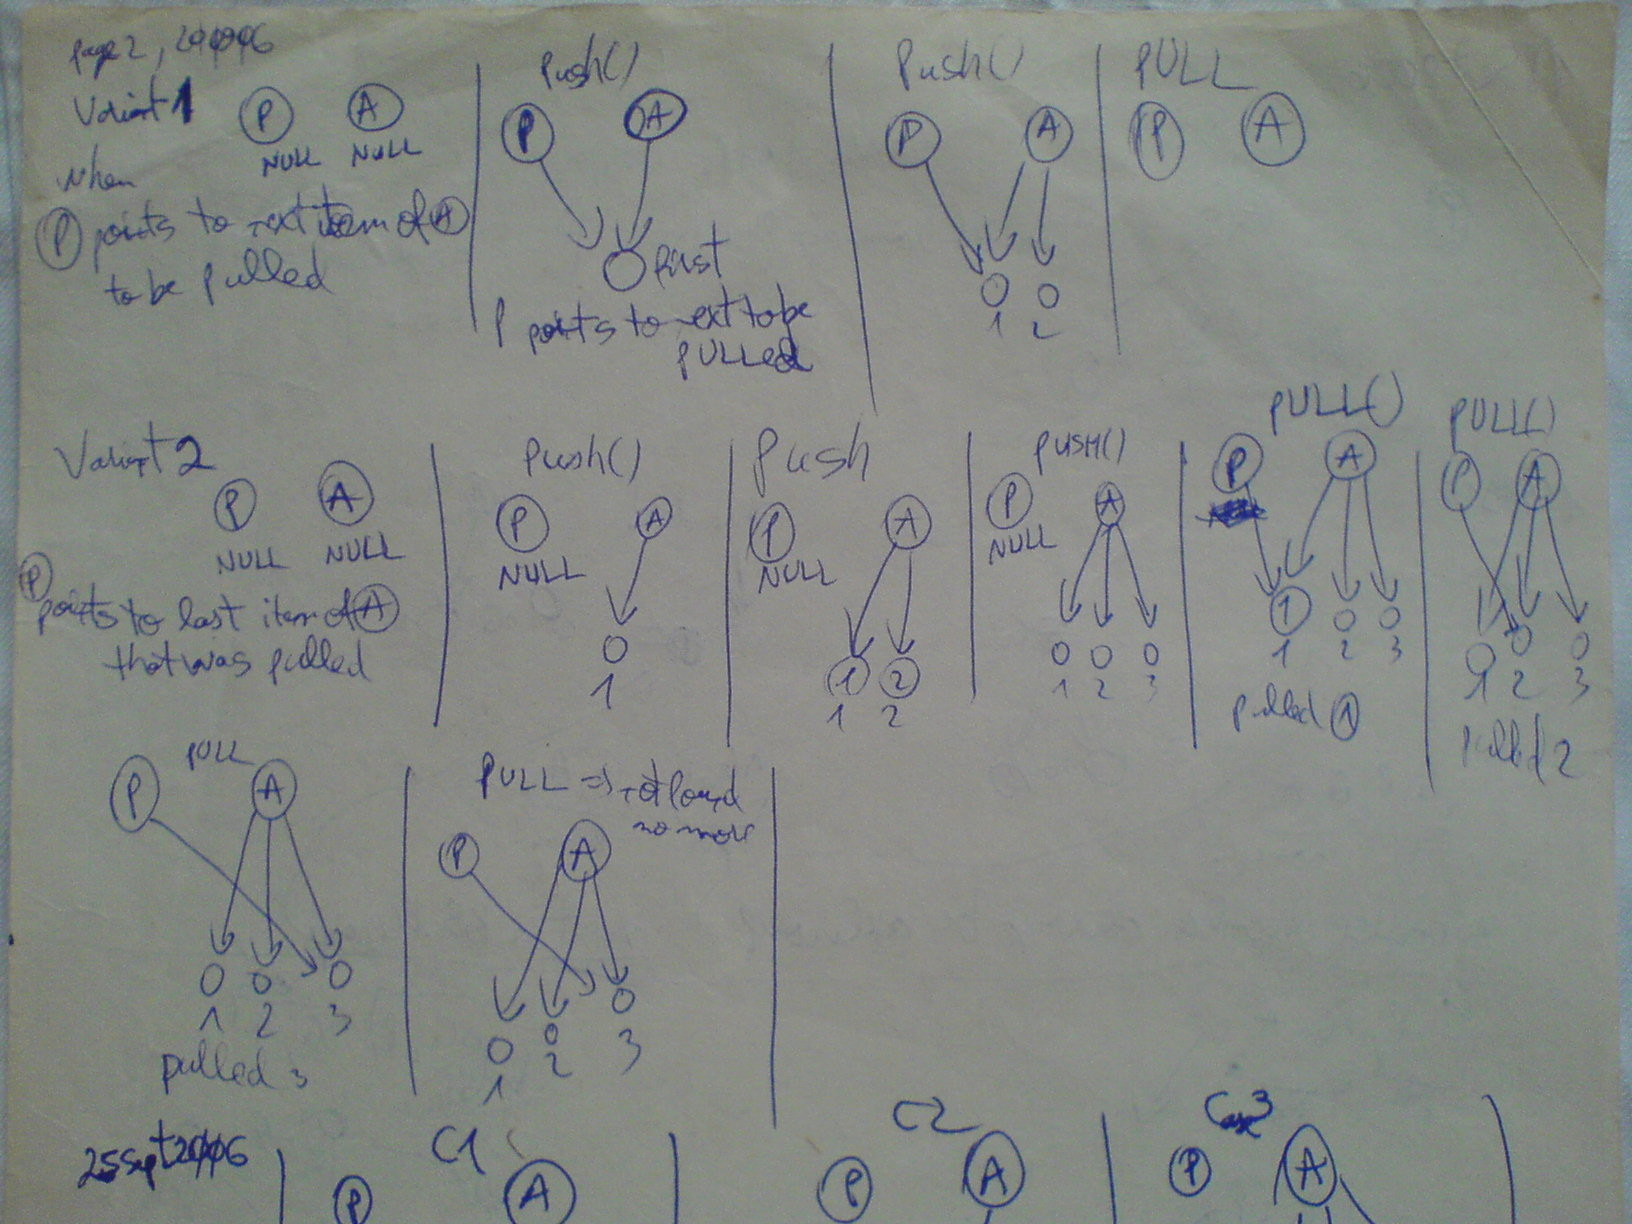 page 2, 240906
Variant 1
P A
NULL NULL
when
P points to next item of A
to be pulled
Push()
P A
first
P points to next to be
PULLed
Push()
P A
1 2
PULL
P A
Variant 2
P A
NULL NULL
P points to last item of A
that was pulled
Push()
P A
NULL
1
Push
P A
NULL
1 2
1 2
PUSH()
P A
NULL
1 2 3
PULL()
P A
1
1 2 3
pulled 1
PULL()
P A
1 2 3
pulled 2
PULL
P A
1 2 3
pulled 3
PULL => not found
no more
P A
1 2 3
25 Sept 2006
C1
P A
C2
P A
Case 3
P A